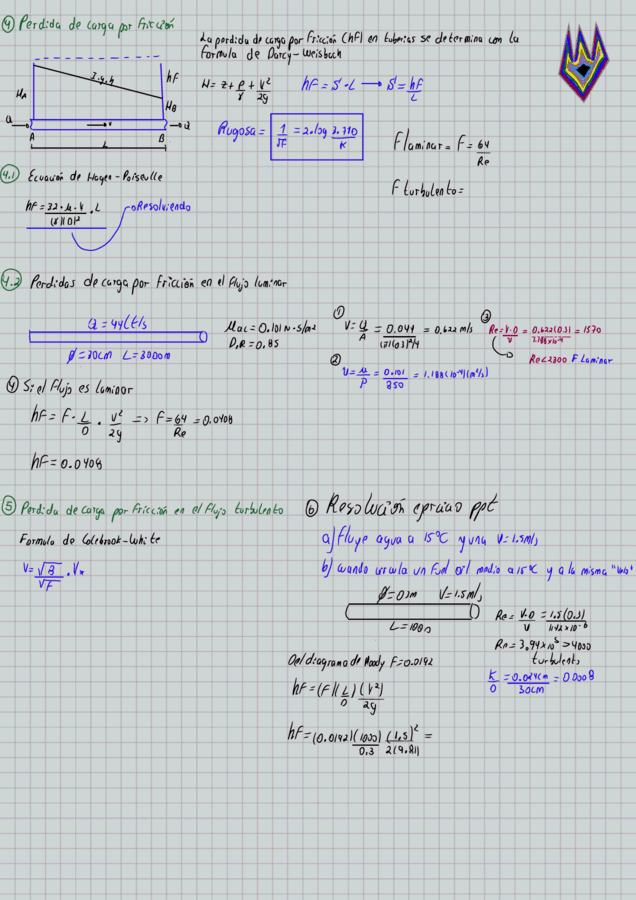 ④ Perdida de carga por Fricción
La perdida de carga por Fricción (hf) en tuberias se determina con la
formula de Darcy-Weisbach
L.g.h
hf
HA
HB
Q
v
Q
A
B
L
H = z + P/γ + V²/2g
hf = S·L → S = hf/L
Rugosa = 1/√f = 2.log 3.71D/K
F laminar = F = 64/Re
F turbulento =
4.1 Ecuación de Hagen-Poiseulle
hf = 32·μ·V/(γ)(D)² · L
Resolviendo
4.2 Perdidas de carga por Fricción en el flujo laminar
Q = 44Lt/s
Ø = 30cm L = 3000m
μac = 0.101 N·s/m²
D.R = 0.85
①
V = Q/A = 0.044/(π)(0.3)²/4 = 0.622 m/s
②
υ = μ/ρ = 0.101/850 = 1.188(10⁻⁴)(m²/s)
③
Re = V·D/υ = 0.622(0.3)/1.188x10⁻⁴ = 1570
Re<2300 F Laminar
④ Si el flujo es laminar
hf = F · L/D · V²/2g => F = 64/Re = 0.0408
hf = 0.0408
⑤ Perdida de carga por Fricción en el flujo turbulento
Formula de Colebrook-White
V = √8/√F · V*
⑥ Resolución ejercicio ppt
a) fluye agua a 15°C y una V = 1.5m/s
b) cuando circula un Fuel oil medio a 15°C y a la misma "Velo"
Ø = 0.3m V = 1.5m/s
L = 1000
Re = V·D/υ = 1.5(0.3)/1.142x10⁻⁶
Rn = 3.94x10⁵ > 4000
turbulento
K/D = 0.024cm/30cm = 0.0008
Del diagrama de Moody F = 0.0192
hf = (F)(L/D)(V²/2g)
hf = (0.0192)(1000/0.3)(1.5)²/2(9.81) =